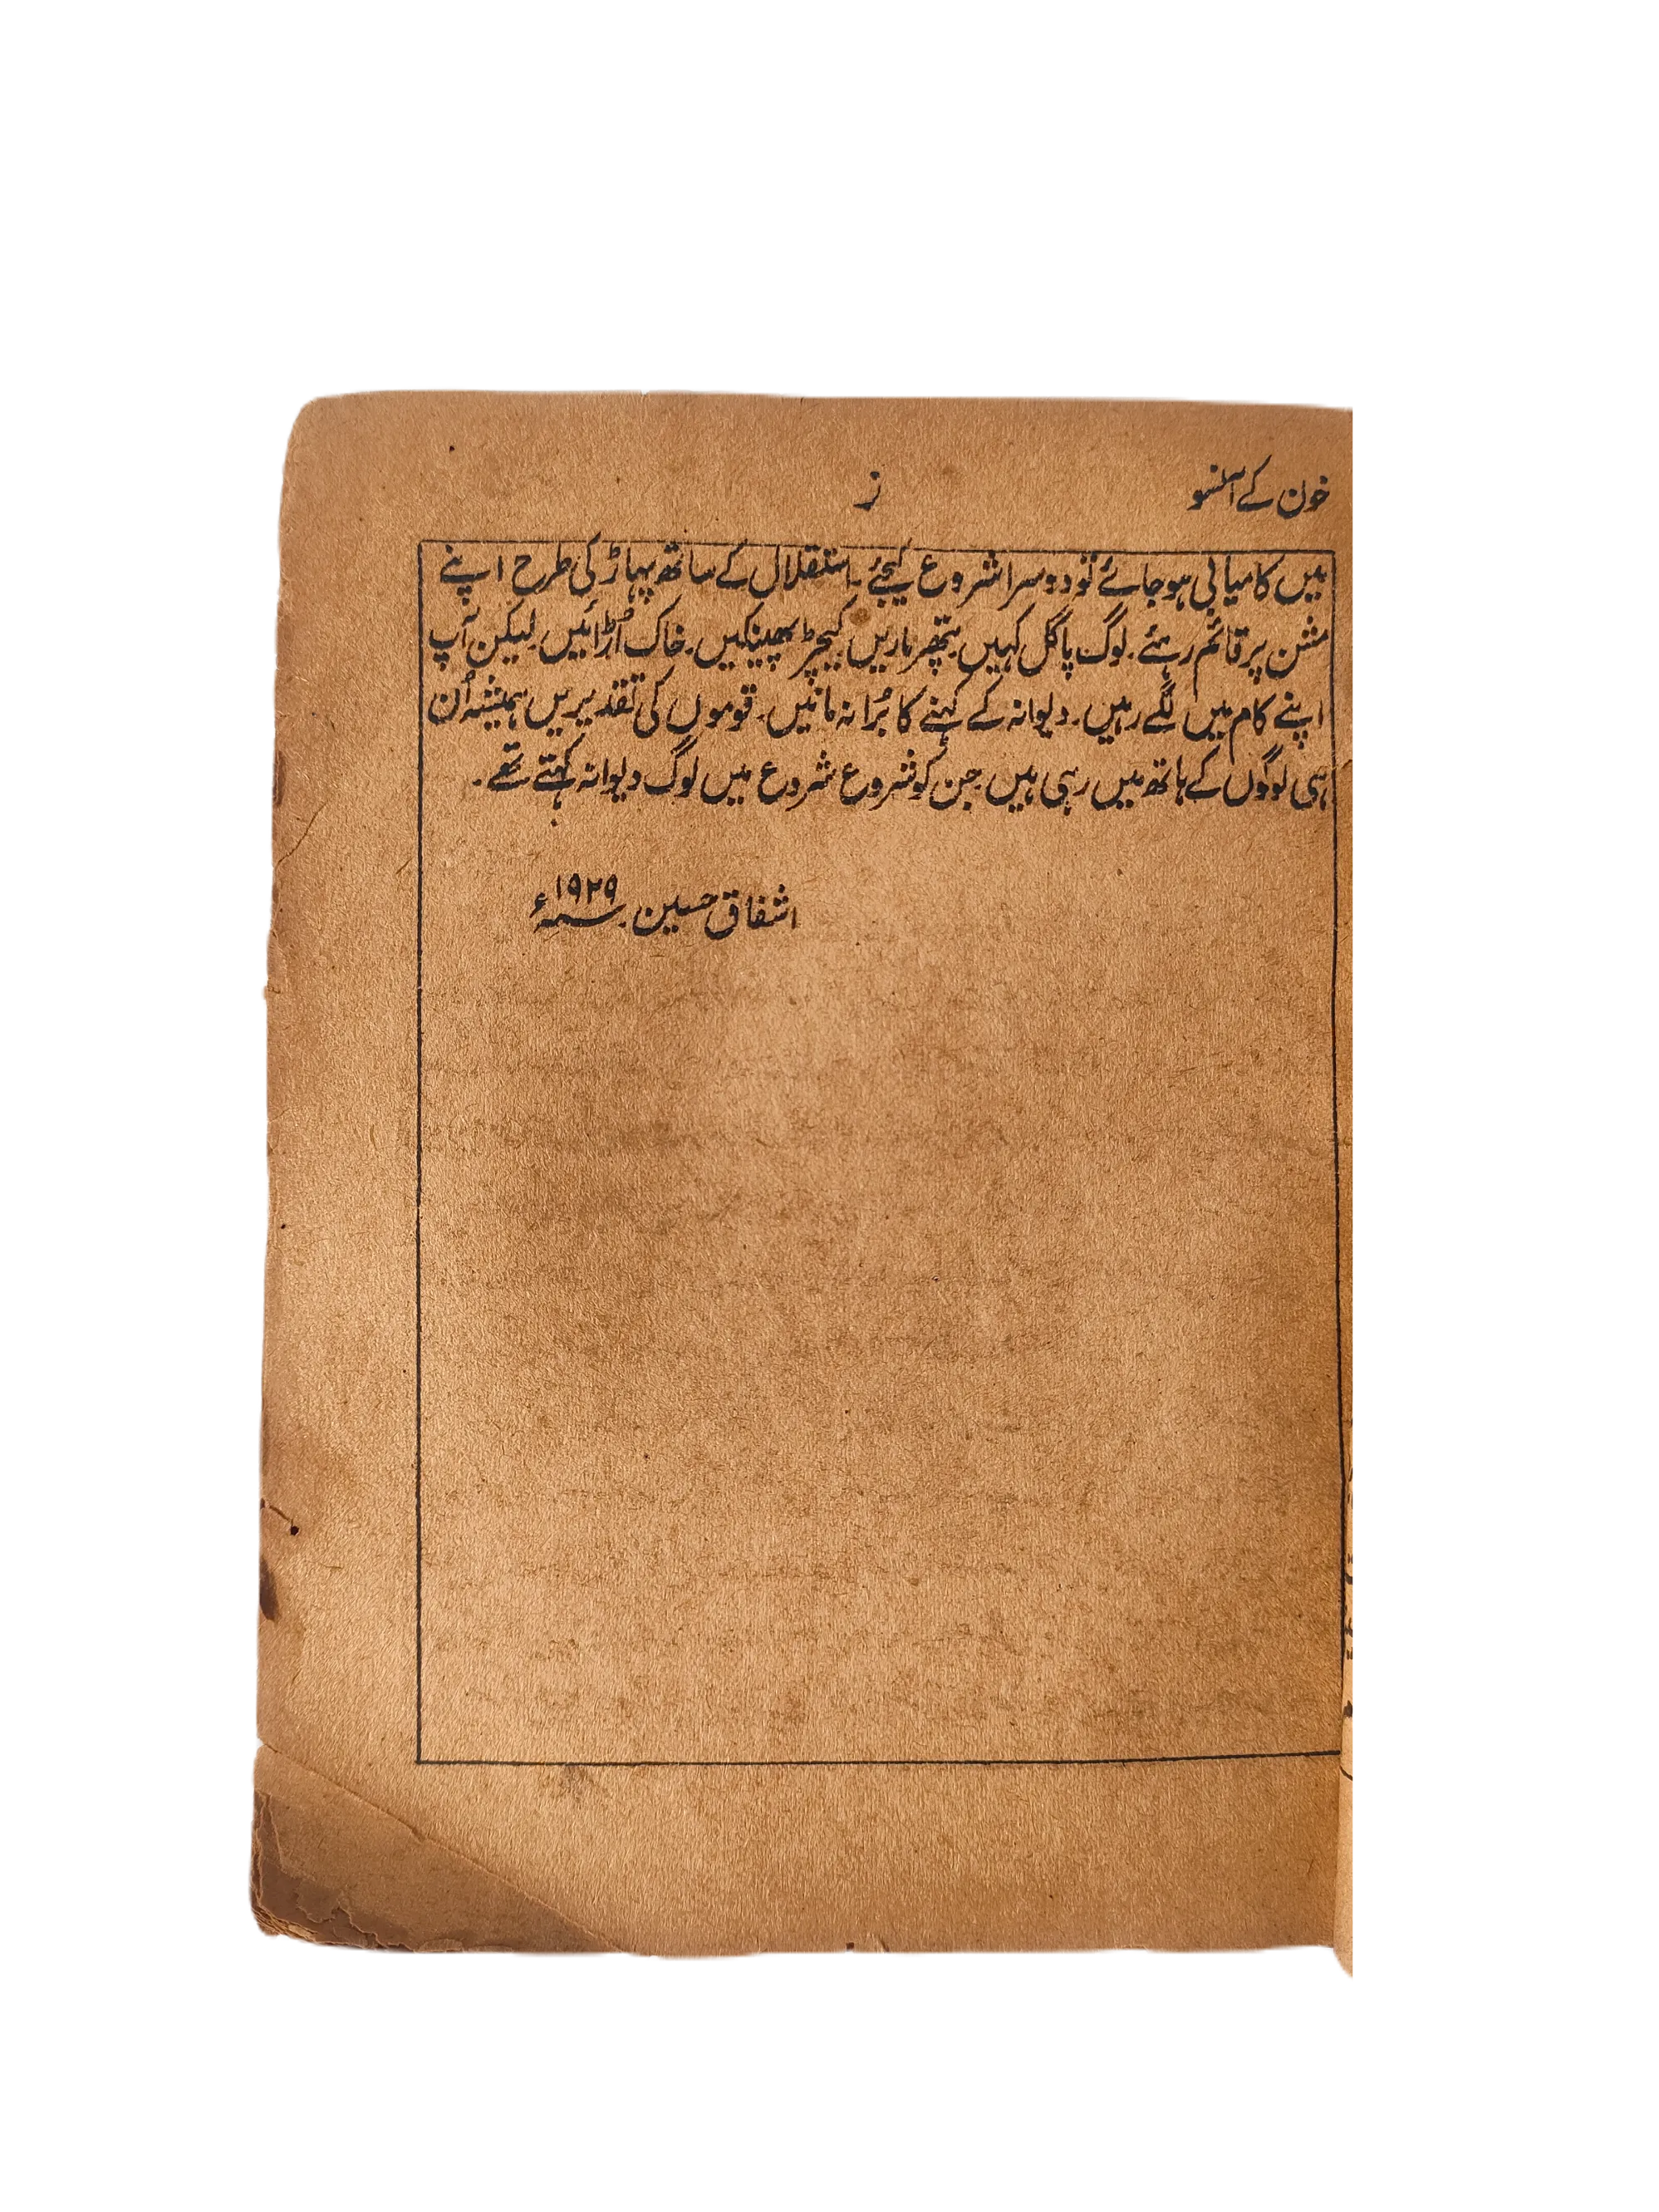 خون کے آنسو
ز
میں کامیابی ہو جائے تو دوسرا شروع کیجئے۔ استقلال کے ساتھ پہاڑ کی طرح اپنے
مشن پر قائم رہئے۔ لوگ پاگل کہیں۔ پتھر ماریں۔ کیچڑ پھینکیں۔ خاک اُڑائیں۔ لیکن آپ
اپنے کام میں لگے رہیں۔ دیوانہ کے کہنے کا بُرا نہ مانیں۔ قوموں کی تقدیریں ہمیشہ اُن
ہی لوگوں کے ہاتھ میں رہی ہیں جن کو شروع شروع میں لوگ دیوانہ کہتے تھے۔
اشفاق حسین۔ ۱۹۲۹ء